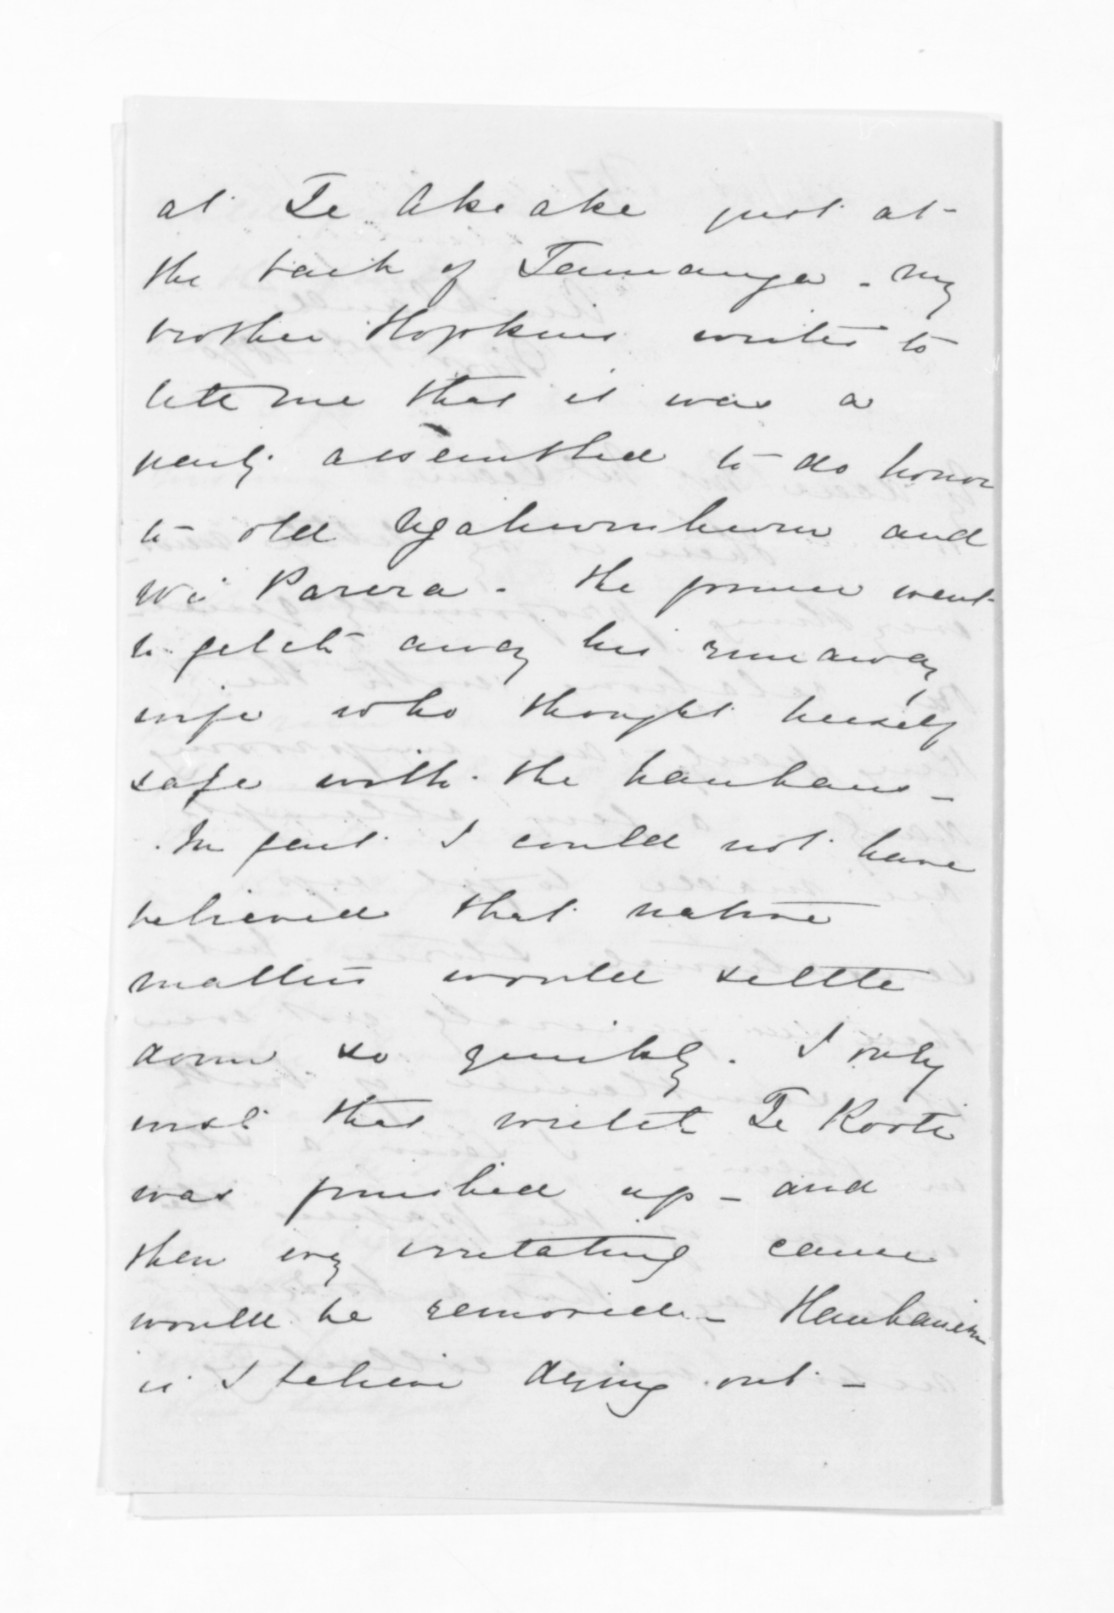 at Te Akeake just at
the back of Tauranga - my
brother Hopkins writes to
tell me that it was a
party assembled to do honor
to old Ngahuruhuru and
Wi Parera - the former went
to fetch away his runaway
wife who thought herself
safe with the hauhaus -
In fact I could not have
believed that native
matters would settle
down so quickly. I only
wish that wretch Te Kooti
was finished up - and
then every irritating cause
would be removed - Hauhauism
is I believe dying out -